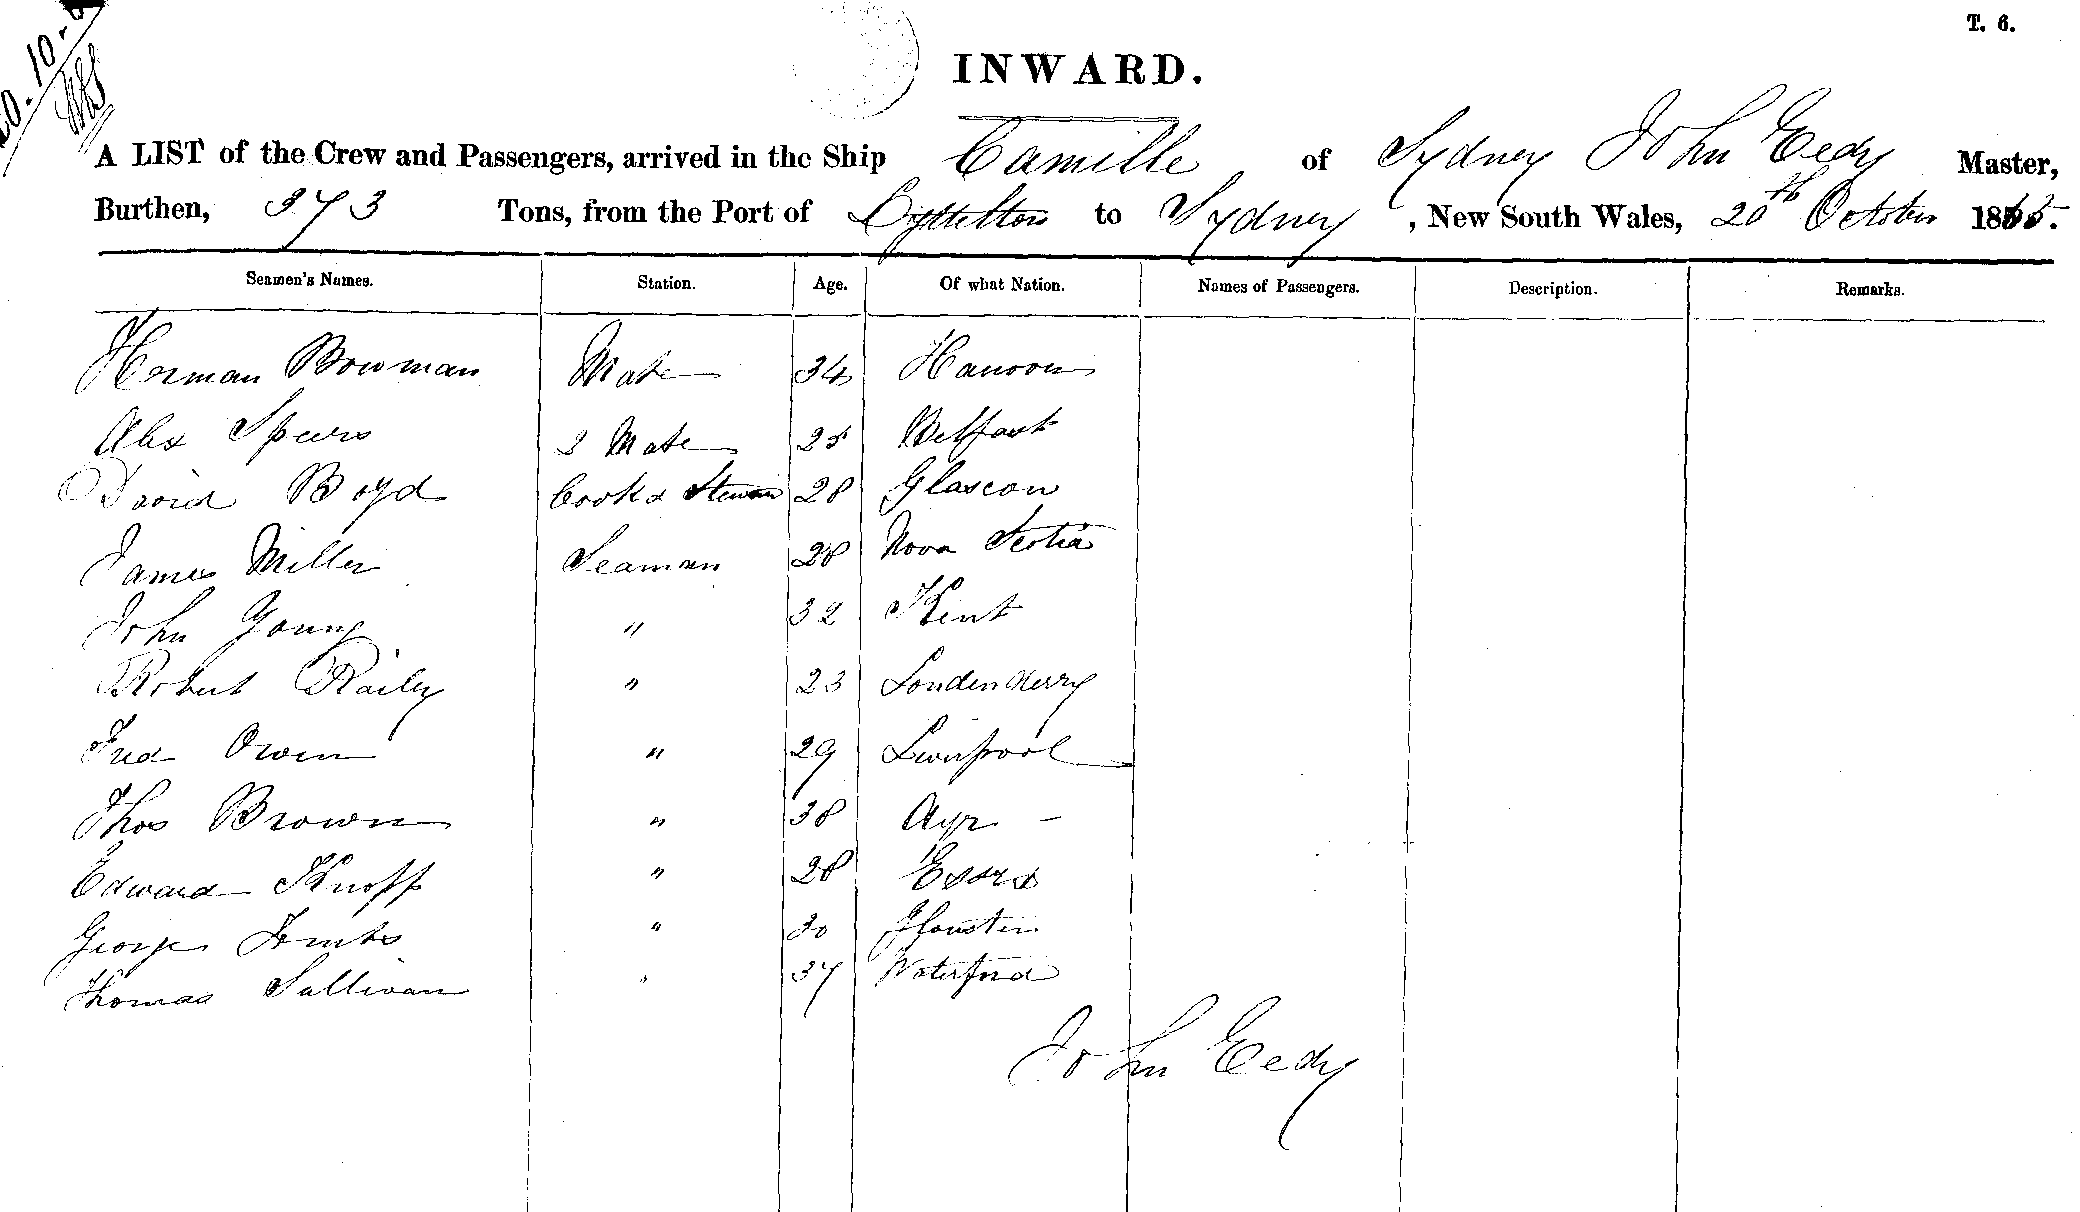 T. 6.
20.10.
INWARD.
A LIST of the Crew and Passengers, arrived in the Ship Camille of Sydney John Eedy Master,
Burthen, 373 Tons, from the Port of Lyttelton to Sydney, New South Wales, 20th October 1865.
Seamen's Names. Station. Age. Of what Nation. Names of Passengers. Description. Remarks.
Herman Bowman Mate 34 Hanover
Alex Speirs 2 Mate 25 Belfast
David Boyd Cook & Steward 28 Glascow
James Miller Seaman 28 Nova Scotia
John Young " 32 Kent
Robert Raily " 23 Londenderry
Fred Owen " 29 Liverpool
Thos Brown " 38 Ayr -
Edward Knopp " 28 Essex
George " 30
Thomas Sullivan " 37 Waterford
John Eedy